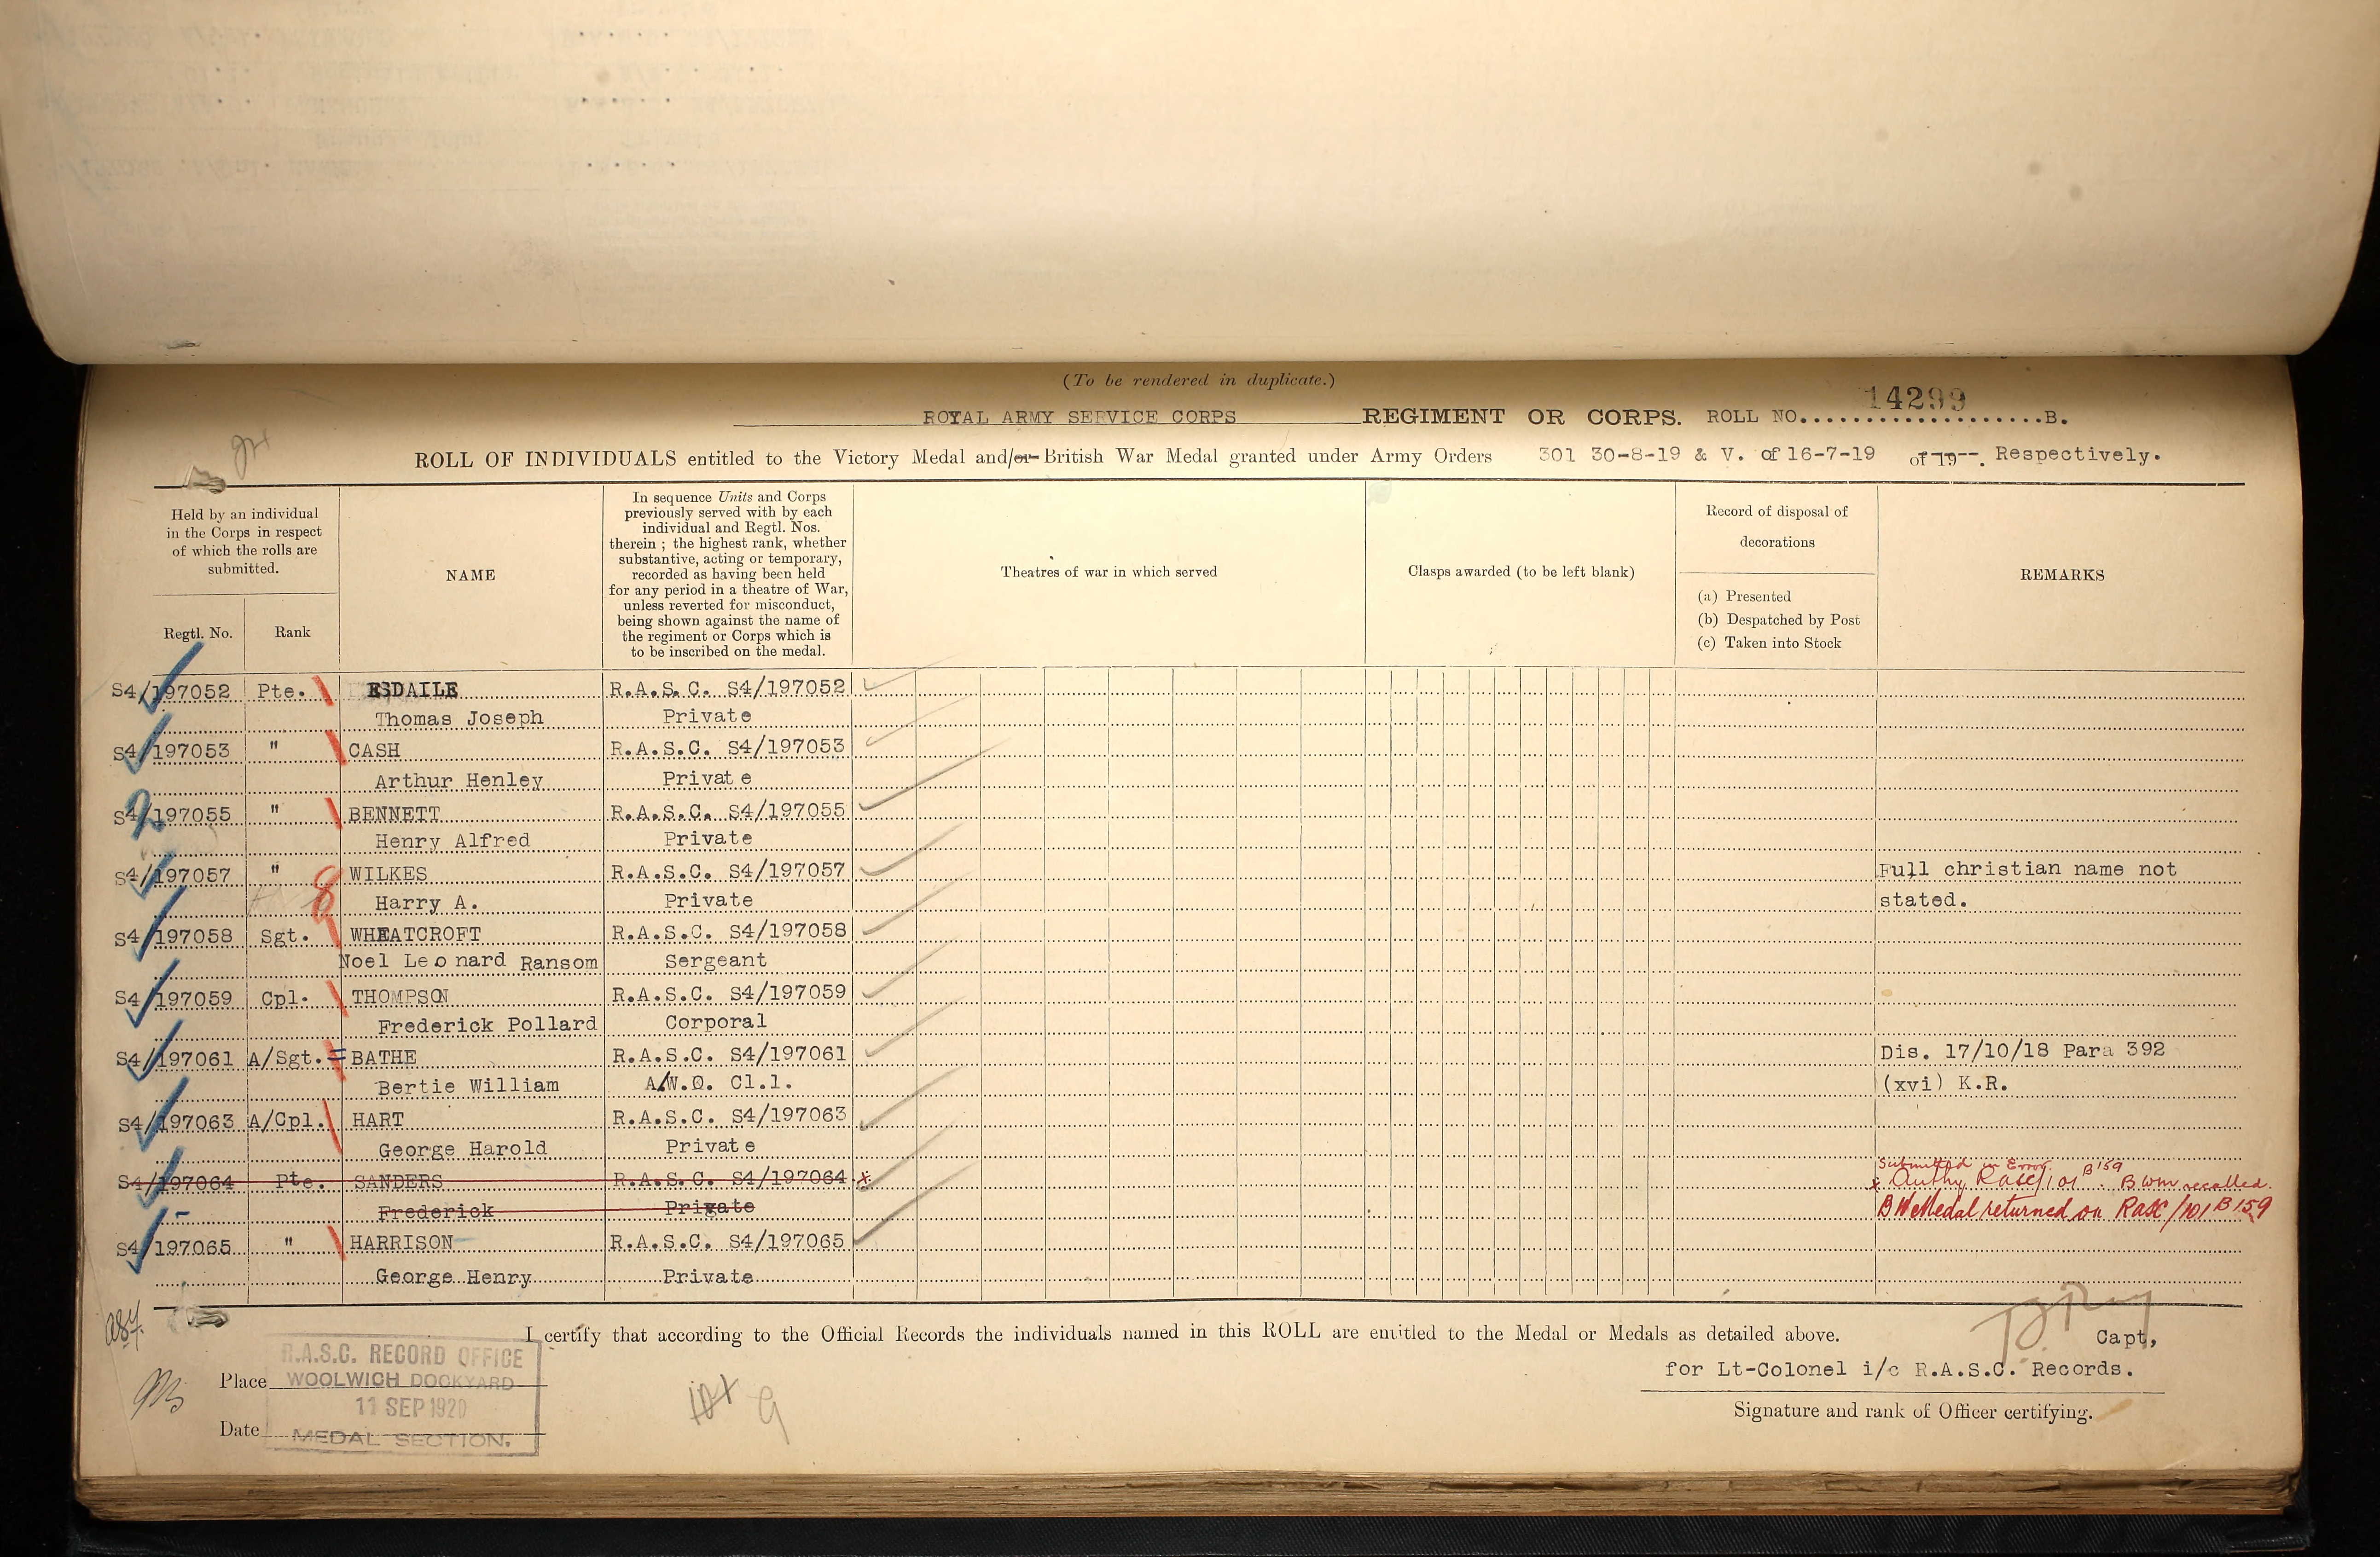 (To be rendered in duplicate.)
ROYAL ARMY SERVICE CORPS REGIMENT OR CORPS. ROLL NO. 14299 B.
ROLL OF INDIVIDUALS entitled to the Victory Medal and/or British War Medal granted under Army Orders 301 30-8-19 & V. of 16-7-19 of 19--. Respectively.
Held by an individual
in the Corps in respect
of which the rolls are
submitted.
Regtl. No. Rank
NAME
In sequence Units and Corps
previously served with by each
individual and Regtl. Nos.
therein ; the highest rank, whether
substantive, acting or temporary,
recorded as having been held
for any period in a theatre of War,
unless reverted for misconduct,
being shown against the name of
the regiment or Corps which is
to be inscribed on the medal.
Theatres of war in which served
Clasps awarded (to be left blank)
Record of disposal of
decorations
(a) Presented
(b) Despatched by Post
(c) Taken into Stock
REMARKS
S4/197052 Pte. ESDAILE R.A.S.C. S4/197052
Thomas Joseph Private
S4/197053 " CASH R.A.S.C. S4/197053
Arthur Henley Private
S4/197055 " BENNETT R.A.S.C. S4/197055
Henry Alfred Private
S4/197057 " WILKES R.A.S.C. S4/197057 Full christian name not
Harry A. Private stated.
S4/197058 Sgt. WHEATCROFT R.A.S.C. S4/197058
Noel Leonard Ransom Sergeant
S4/197059 Cpl. THOMPSON R.A.S.C. S4/197059
Frederick Pollard Corporal
S4/197061 A/Sgt. BATHE R.A.S.C. S4/197061 Dis. 17/10/18 Para 392
Bertie William A/W.O. Cl.1. (xvi) K.R.
S4/197063 A/Cpl. HART R.A.S.C. S4/197063
George Harold Private
Submitted in Error.
S4/197064 Pte. SANDERS R.A.S.C. S4/197064 x x Authy Rasc/101 B159. BWM recalled.
Frederick Private B W Medal returned on Rasc/101 B159
S4/197065 " HARRISON R.A.S.C. S4/197065
George Henry Private
I certify that according to the Official Records the individuals named in this ROLL are entitled to the Medal or Medals as detailed above.
Capt,
for Lt-Colonel i/c R.A.S.C. Records.
Signature and rank of Officer certifying.
R.A.S.C. RECORD OFFICE
Place WOOLWICH DOCKYARD
11 SEP 1920
Date MEDAL SECTION.
9